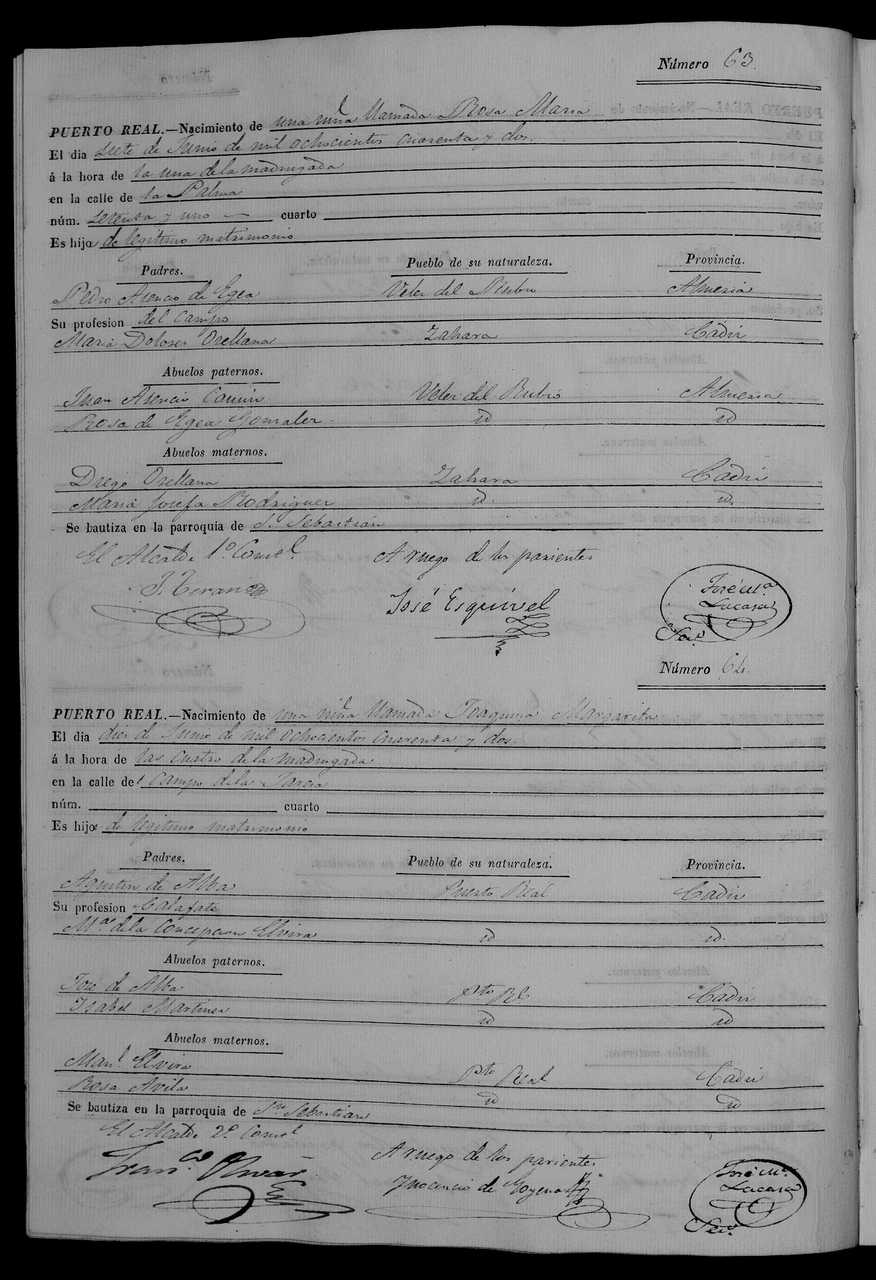 Número 63.
PUERTO REAL.—Nacimiento de una niña llamada Rosa Maria
El dia siete de Junio de mil ochocientos cuarenta y dos.
á la hora de la una de la madrugada
en la calle de la Palma
núm. setenta y uno — cuarto
Es hija de legitimo matrimonio
Padres. Pueblo de su naturaleza. Provincia.
Pedro Asencio de Egea Velez del Rubio Almeria
Su profesion del campo
Maria Dolores Orellana Zahara Cadiz
Abuelos paternos.
Juan Asencio Velez del Rubio Almeria
Rosa de Egea Gonzalez id id
Abuelos maternos.
Diego Orellana Zahara Cadiz
Maria Josefa Rodriguez id. id.
Se bautiza en la parroquia de Sn Sebastián
El Alcalde 1º Constl A ruego de los parientes
J. Teran José Esquivel José Mª
Lacasa
Srio
Número 64.
PUERTO REAL.—Nacimiento de una niña llamada Joaquina Margarita
El dia diez de Junio de mil ochocientos cuarenta y dos.
á la hora de las cuatro de la madrugada
en la calle del Campo de la
núm. cuarto
Es hija de legitimo matrimonio
Padres. Pueblo de su naturaleza. Provincia.
Agustin de Alba Puerto Real Cadiz
Su profesion Calafate
Mª de la Concepcion Elvira id id.
Abuelos paternos.
José de Alba Pto Rl Cadiz
Isabel Martinez id id
Abuelos maternos.
Manl Elvira Pto Real Cadiz
Rosa Avila id id
Se bautiza en la parroquia de Sn Sebastian
El Alcalde 2º Constl A ruego de los parientes
Franco Inocencio de Goyena José Mª
Lacasa
Srio